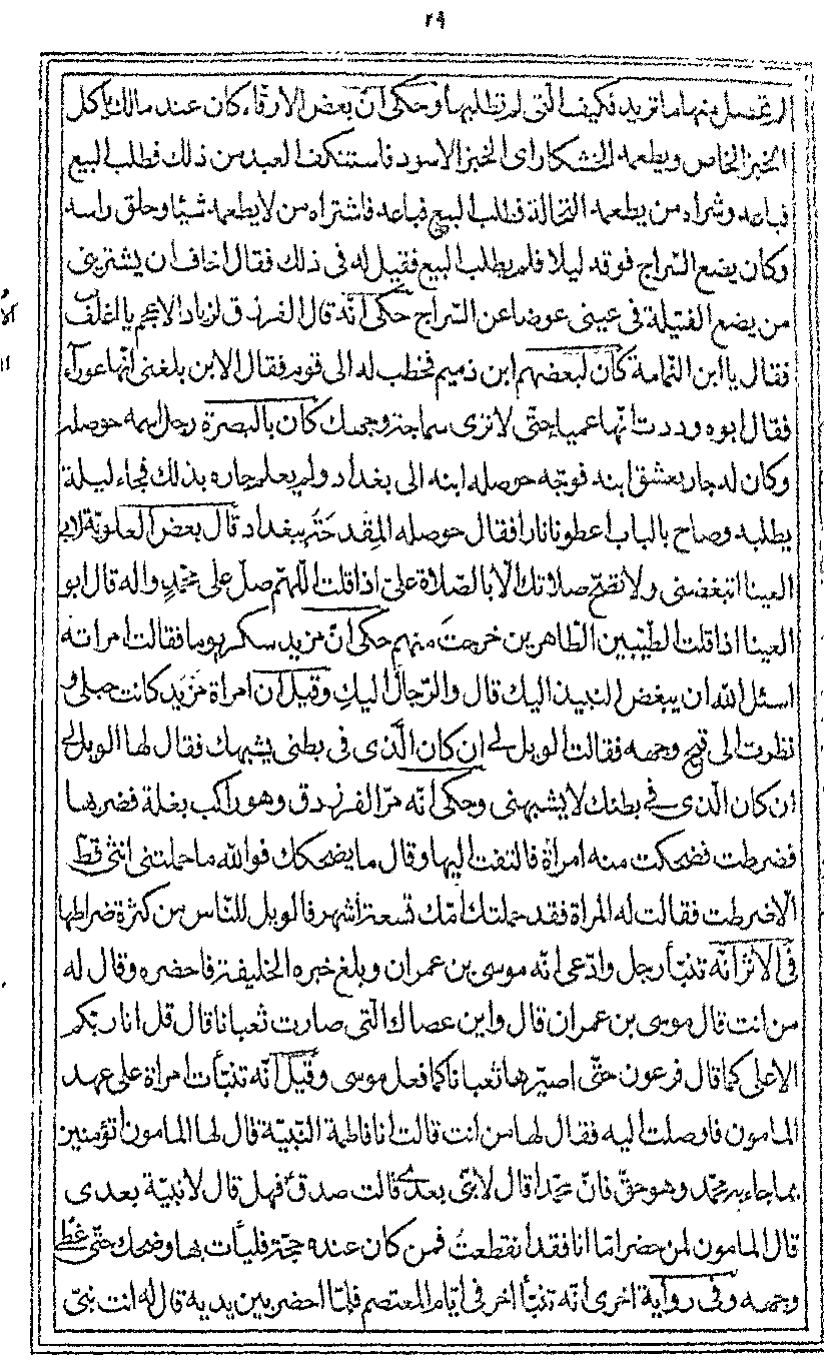 ٢٩
لم تحصل منها ما تريد فكيف الّتى لم تطلبها وحكى انّ بعض الارقّاء كان عند مالك يأكل
الخبز الخاص ويطعمه الخشكار اى الخبز الاسود فاستنكف العبد من ذلك فطلب البيع
فباعه وشراه من يطعمه النخالة فطلب البيع فباعه فاشتراه من لا يطعمه شيئا وحلق راسه
وكان يضع السّراج فوقه ليلا فلم يطلب البيع فقيل له فى ذلك فقال اخاف ان يشترينى
من يضع الفتيلة فى عينى عوضا عن السّراج حكى انّه قال الفرزدق لزياد الاعجم يا اغلف
فقال يا ابن النّمامة كان لبعضهم ابن دميم فخطب له الى قوم فقال الابن بلغنى انّها عوراء
فقال ابوه وددت انّها عمياء حتّى لا ترى سماجة وجهك كان بالبصرة رجل اسمه حوصله
وكان له جار يعشق ابنه فوجّه حوصله ابنه الى بغداد ولم يعلم جاره بذلك فجاء ليلة
يطلبه وصاح بالباب اعطونا نارا فقال حوصله المقدحة ببغداد قال بعض العلويّة لابى
العينا اتبغضنى ولا تصحّ صلاتك الّا بالصّلاة علىّ اذا قلت اللّهمّ صلّ على محمّدٍ واله قال ابو
العينا اذا قلت الطّيّبين الطّاهرين خرجتَ منهم حكى انّ مزيد سكر يوما فقالت امراته
اسئل اللّه ان يبغض النبيذ اليك قال والرّجال اليكِ وقيل ان امراة مَزيَد كانت حبلى و
نظرت الى قبح وجهه فقالت الويل لى ان كان الّذى فى بطنى يشبهك فقال لها الويل لى
ان كان الّذى فى بطنك لا يشبهنى وحكى انّه مرّ الفرزدق وهو راكب بغلة فضربها
فضرطت فضحكت منه امراة فالتفت اليها وقال ما يضحكك فوالله ما حملتنى انثى قطّ
الّا ضرطت فقالت له المراة فقد حملتك امّك تسعة اشهر فالويل للنّاس من كثرة ضراطها
فى الاثر انّه تنبّأ رجل وادّعى انّه موسى بن عمران وبلغ خبره الخليفة فاحضره وقال له
من انت قال موسى بن عمران قال واين عصاك الّتى صارت ثعبانا قال قل انا ربّكم
الاعلى كما قال فرعون حتّى اصيّرها ثعبانا كما فعل موسى وقيل انّه تنبّأت امراة على عهد
المامون فاوصلت اليه فقال لها من انت قالت انا فاطمة النّبيّة قال لها المامون اتؤمنين
بما جاء به محمّد وهو حقّ فانّ محمّدا قال لا نبىّ بعدى قالت صدق فهل قال لا نبيّة بعدى
قال المامون لمن حضر امّا انا فقد انقطعتُ فمن كان عنده حجّة فليأت بها وضحك حتّى غطّى
وجهه وفى رواية اخرى انّه تنبّأ اخر فى ايّام المعتصم فلمّا احضر بين يديه قال له انت نبىّ